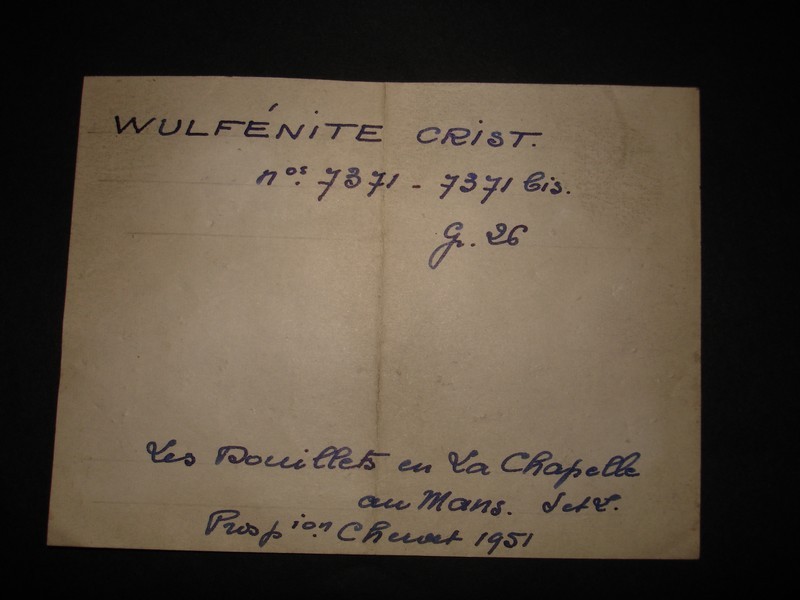 WULFÉNITE CRIST.
nos. 7371 - 7371 bis.
G. 26
Les Bouillets en La Chapelle
au Mans. S et L.
Prospion 1951